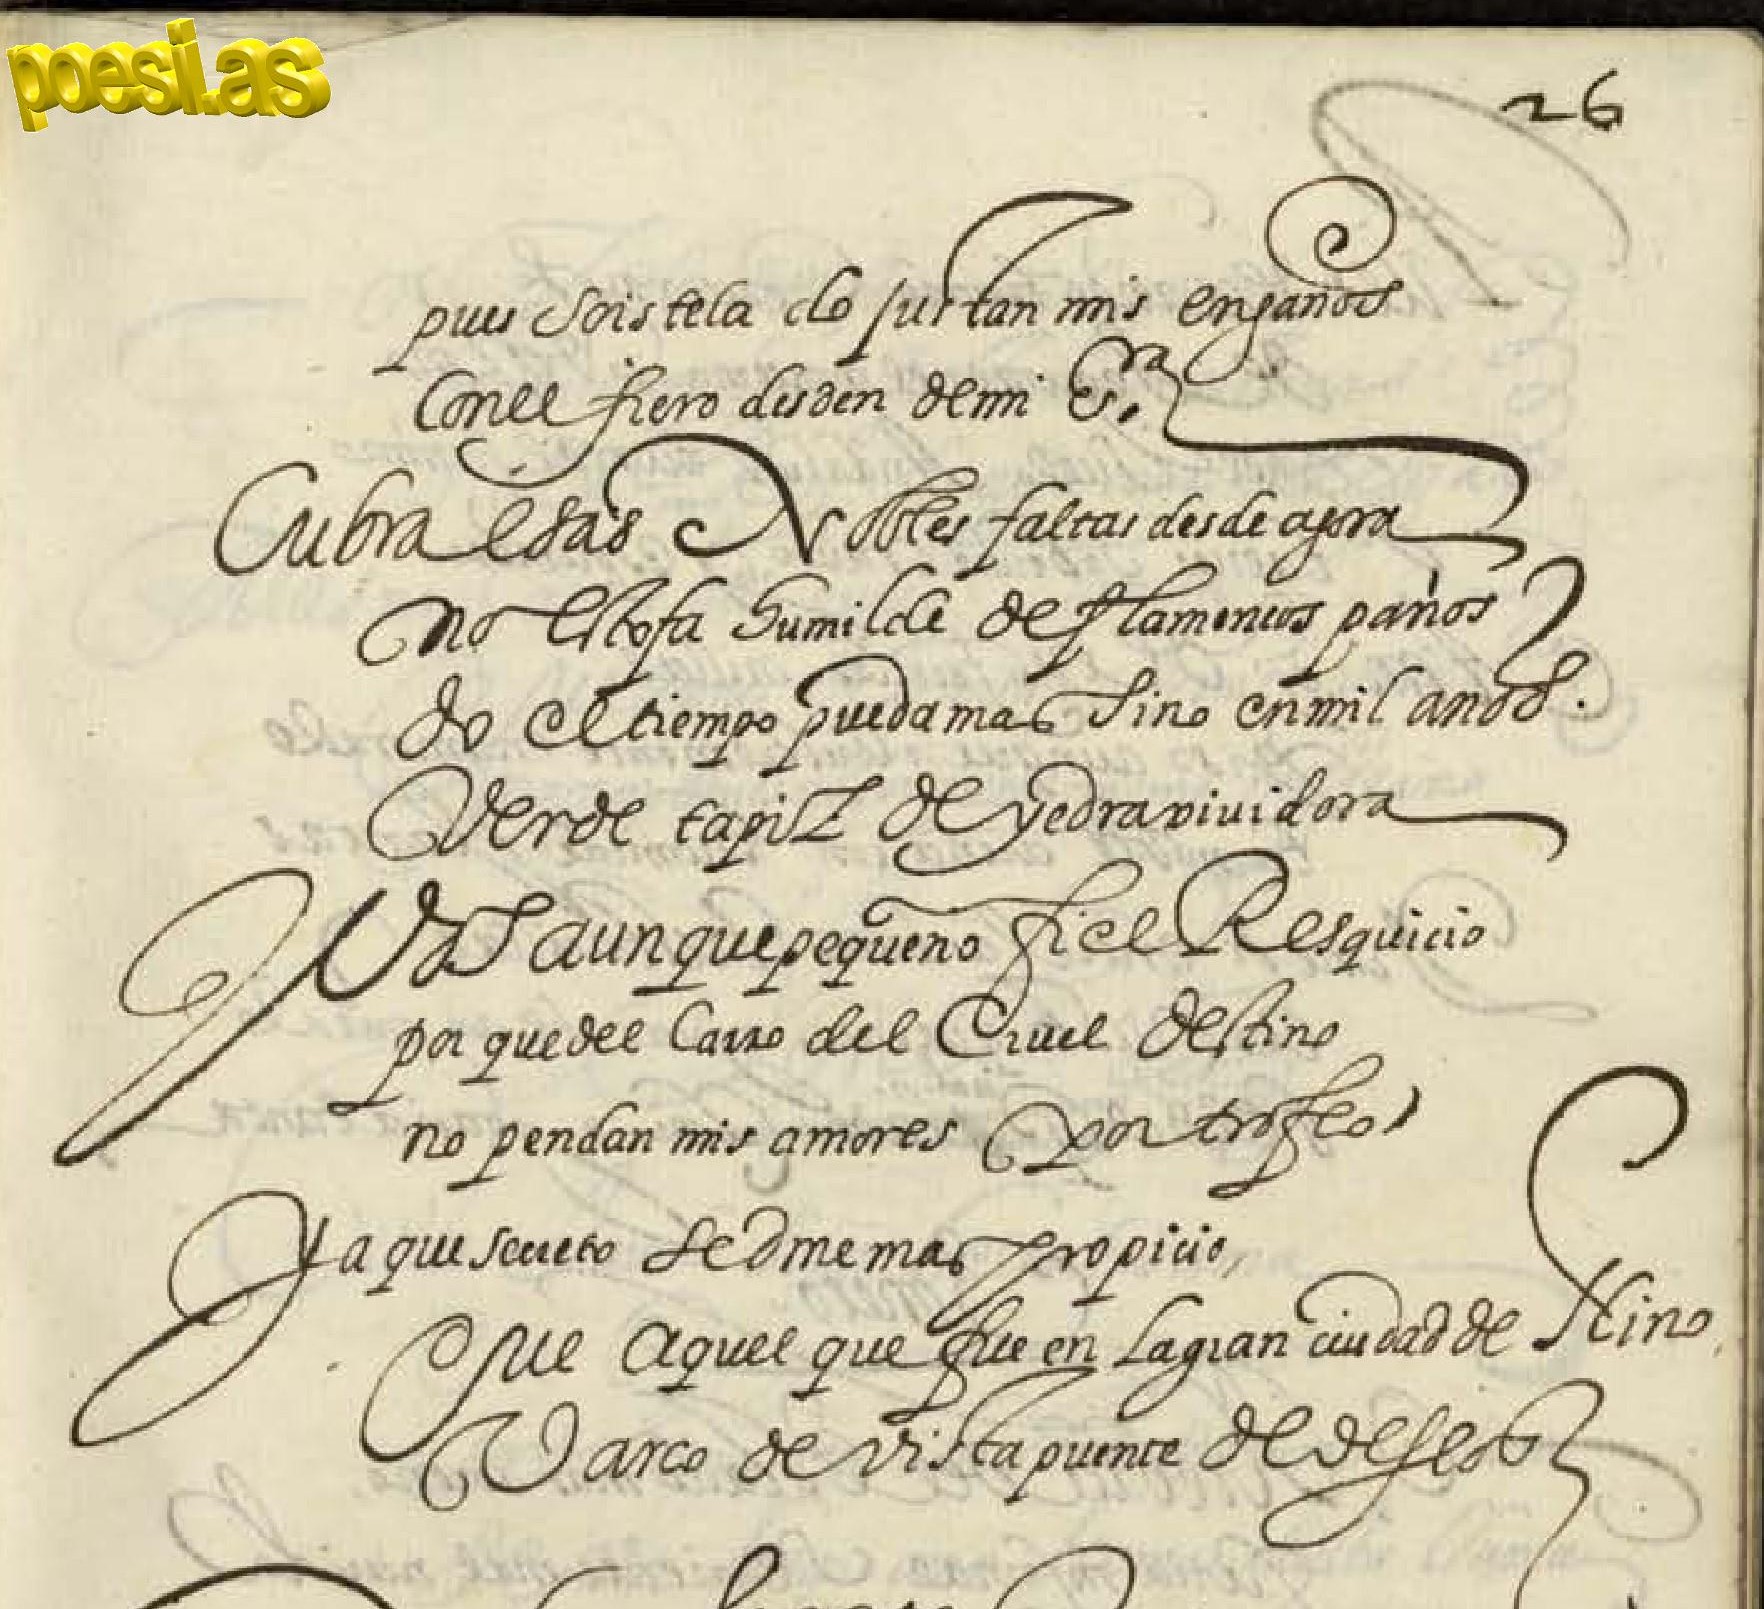 poesi.as
26
pues sois tela do justan mis engaños
Conel fiero desden de mi S.ra
Cubra esas Nobles faltas desde agora
no estofa humilde de flamencos paños
do el tiempo pueda mas sino en mil años.
Verde tapiz de yedra vividora
Vos aunque pequeño fiel Resquicio
porque del Carro del Cruel destino
no pendan mis amores por trofeos
Ya que secreto sedme mas propicio,
Que aquel que fue en la gran ciudad de Nino,
Varco de vista puente de deseos